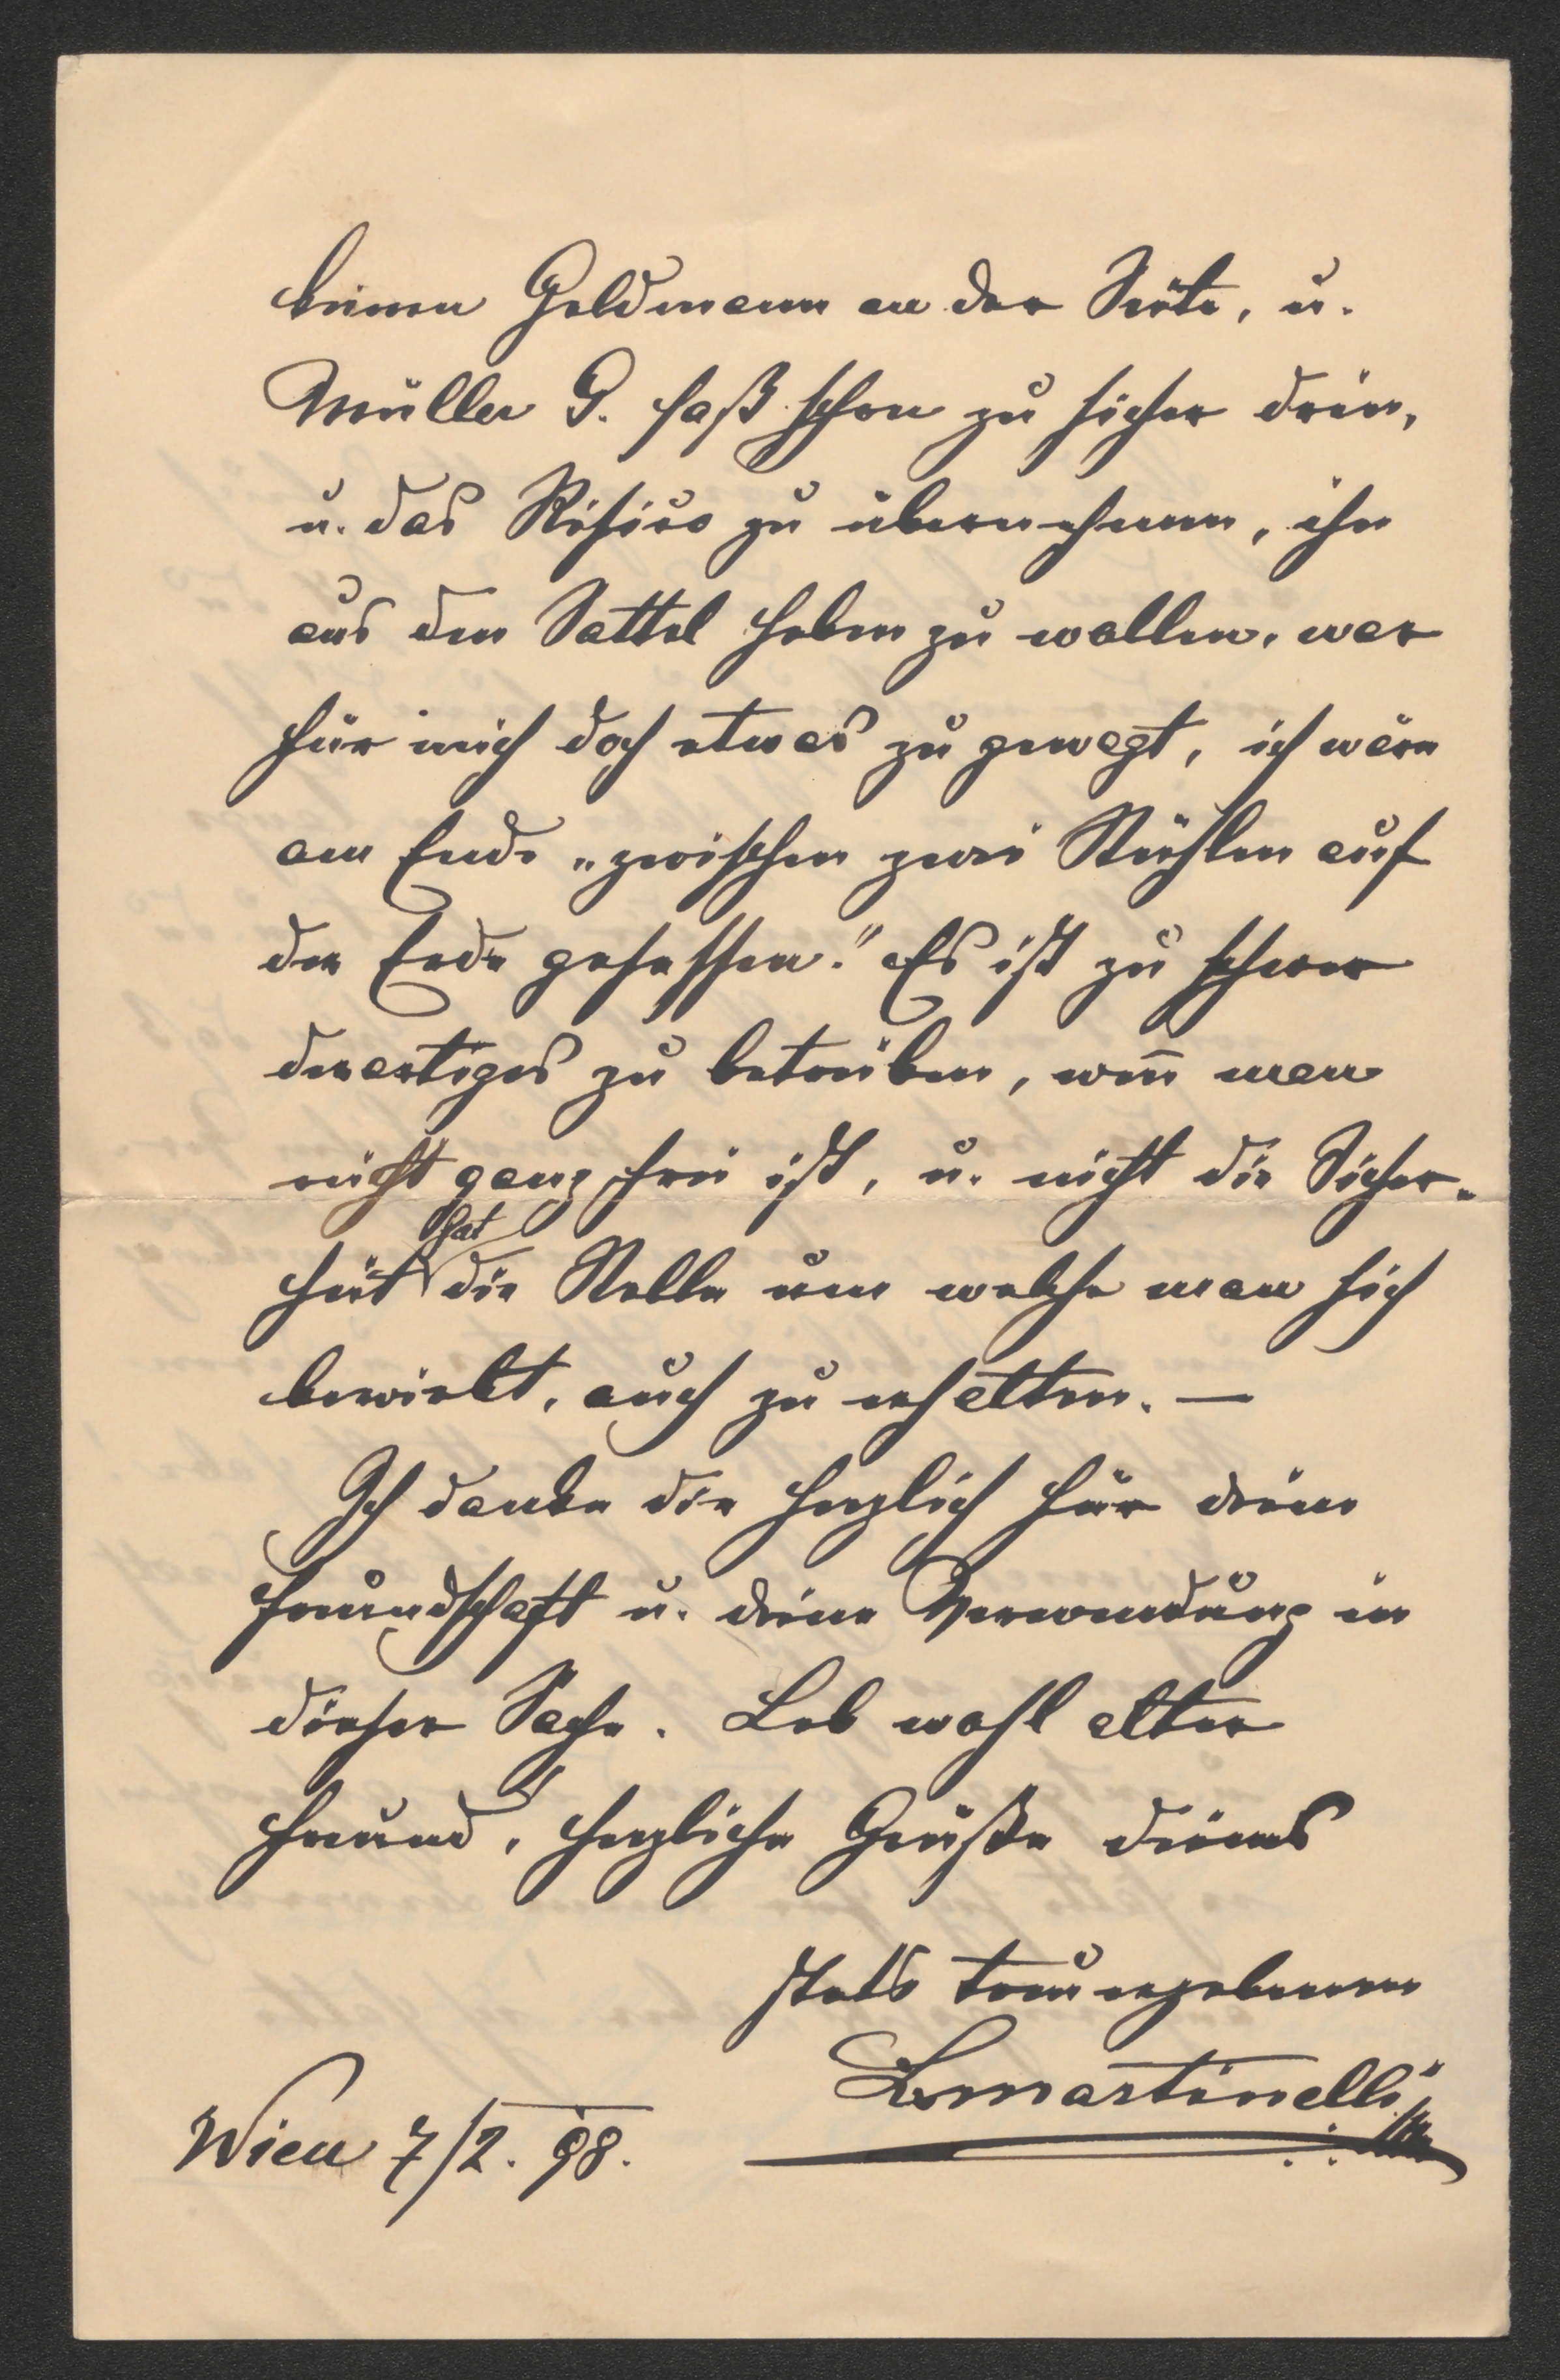 keinen Geldmann an der Seite, u.
Müller G. saß schon zu sicher drin,
u. das Risico zu übernehmen, ihn
aus dem Sattel heben zu wollen, war
für mich doch etwas zu gewagt, ich wäre
am Ende „zwischen zwei Stühlen auf
der Erde gesessen." Es ist zu schwer
derartiges zu betreiben, weñ man
nicht ganz frei ist, u. nicht die Sicher-
heit hat die Stelle um welche man sich
bewirbt, auch zu erhalten. —
Ich danke dir herzlich für deine
Freundschaft u. deine Verwendung in
dieser Sache. Leb wohl alter
Freund, herzliche Grüße deines
stets treuergebenen
LMartinelli
Wien 7/2. 98.